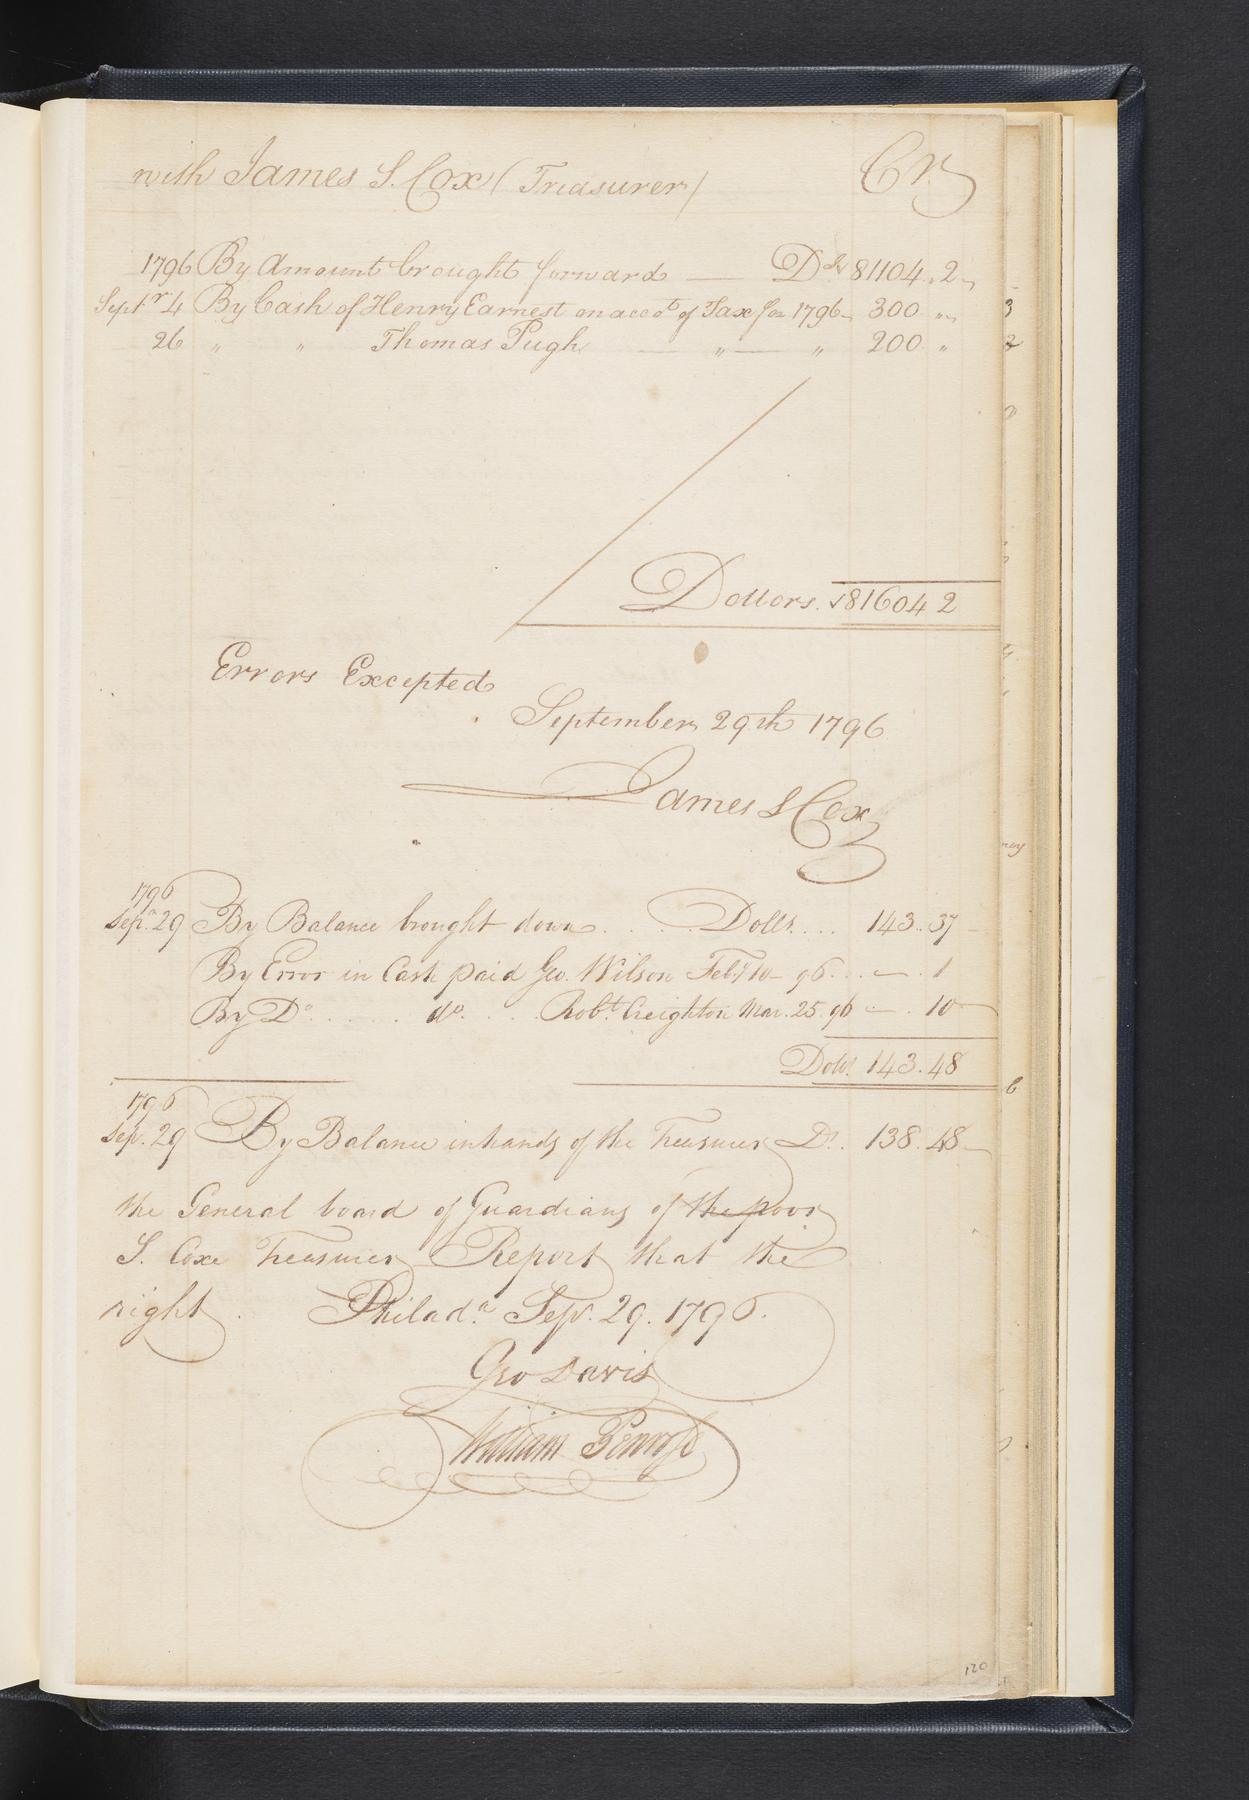 with James S. Cox (Treasurer) Cr
1796 By Amount brought forward — Drs 81104 .. 2
Septr 4 By Cash of Henry Earnest on accot of Tax for 1796 300 "
26 " " Thomas Pugh — " — " 200 "
Dollars. 81604 2
Errors Excepted
September 29th 1796
James S Cox
1796
Sepr. 29 By Balance brought down . . . . Dolls. ... 143 .. 37
By Error in Cash paid Geo. Wilson Feby 10 - 96 ... — . 1
By Do . . . . do. . . . Robt. Creighton Mar. 25. 96 — . 10
Dolls. 143. 48
1796
Sep. 29 By Balance in hands of the Treasurer Ds. 138. 48
the General board of Guardians of the poor
S. Coxe Treasurer Report that the
right. Philada. Sepr. 29. 1796.
Geo Davis
William Penrose
120